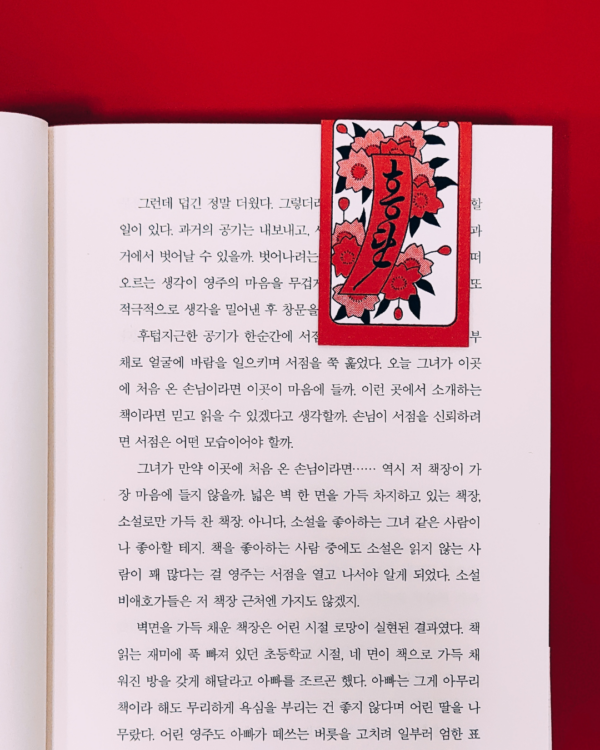 그런데 덥긴 정말 더웠다. 그렇더라 할
일이 있다. 과거의 공기는 내보내고, 과
거에서 벗어날 수 있을까. 벗어나려는 떠
오르는 생각이 영주의 마음을 무겁게 또
적극적으로 생각을 밀어낸 후 창문을
후텁지근한 공기가 한순간에 서점 부
채로 얼굴에 바람을 일으키며 서점을 쭉 훑었다. 오늘 그녀가 이곳
에 처음 온 손님이라면 이곳이 마음에 들까. 이런 곳에서 소개하는
책이라면 믿고 읽을 수 있겠다고 생각할까. 손님이 서점을 신뢰하려
면 서점은 어떤 모습이어야 할까.
그녀가 만약 이곳에 처음 온 손님이라면…… 역시 저 책장이 가
장 마음에 들지 않을까. 넓은 벽 한 면을 가득 차지하고 있는 책장,
소설로만 가득 찬 책장. 아니다, 소설을 좋아하는 그녀 같은 사람이
나 좋아할 테지. 책을 좋아하는 사람 중에도 소설은 읽지 않는 사
람이 꽤 많다는 걸 영주는 서점을 열고 나서야 알게 되었다. 소설
비애호가들은 저 책장 근처엔 가지도 않겠지.
벽면을 가득 채운 책장은 어린 시절 로망이 실현된 결과였다. 책
읽는 재미에 푹 빠져 있던 초등학교 시절, 네 면이 책으로 가득 채
워진 방을 갖게 해달라고 아빠를 조르곤 했다. 아빠는 그게 아무리
책이라 해도 무리하게 욕심을 부리는 건 좋지 않다며 어린 딸을 나
무랐다. 어린 영주도 아빠가 떼쓰는 버릇을 고치려 일부러 엄한 표
홍단